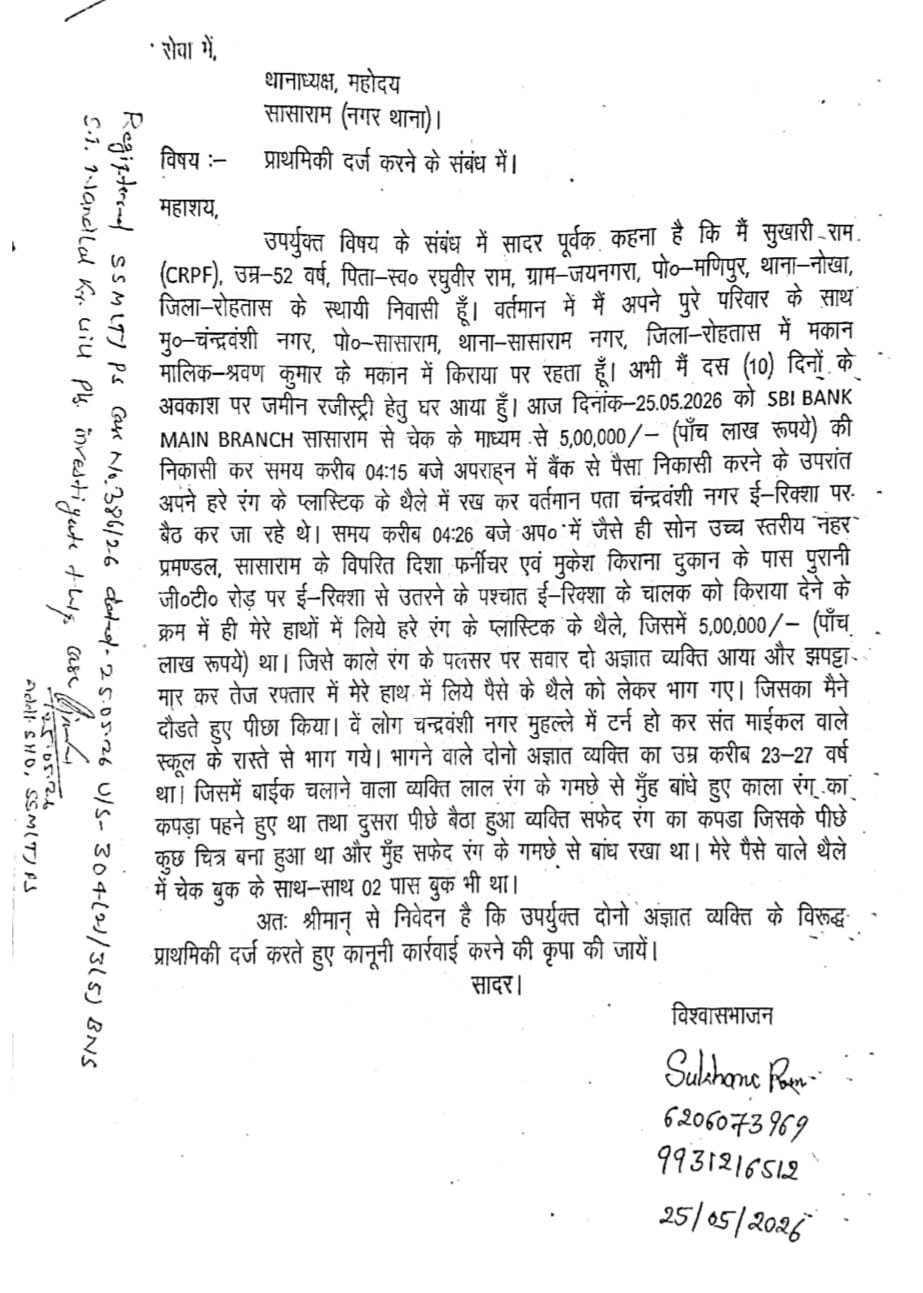 सेवा में,
थानाध्यक्ष, महोदय
सासाराम (नगर थाना)।
विषय :– प्राथमिकी दर्ज करने के संबंध में।
महाशय,
उपर्युक्त विषय के संबंध में सादर पूर्वक कहना है कि मैं सुखारी राम
(CRPF), उम्र–52 वर्ष, पिता–स्व० रघुवीर राम, ग्राम–जयनगरा, पो०–मणिपुर, थाना–नोखा,
जिला–रोहतास के स्थायी निवासी हूँ। वर्तमान में मैं अपने पुरे परिवार के साथ
मु०–चंन्द्रवंशी नगर, पो०–सासाराम, थाना–सासाराम नगर, जिला–रोहतास में मकान
मालिक–श्रवण कुमार के मकान में किराया पर रहता हूँ। अभी मैं दस (10) दिनों के
अवकाश पर जमीन रजीस्ट्री हेतु घर आया हुँ। आज दिनांक–25.05.2026 को SBI BANK
MAIN BRANCH सासाराम से चेक के माध्यम से 5,00,000/– (पाँच लाख रूपये) की
निकासी कर समय करीब 04:15 बजे अपराहन में बैंक से पैसा निकासी करने के उपरांत
अपने हरे रंग के प्लास्टिक के थैले में रख कर वर्तमान पता चंन्द्रवंशी नगर ई–रिक्शा पर
बैठ कर जा रहे थे। समय करीब 04:26 बजे अप० में जैसे ही सोन उच्च स्तरीय नहर
प्रमण्डल, सासाराम के विपरित दिशा फर्नीचर एवं मुकेश किराना दुकान के पास पुरानी
जी०टी० रोड़ पर ई–रिक्शा से उतरने के पश्चात ई–रिक्शा के चालक को किराया देने के
क्रम में ही मेरे हाथों में लिये हरे रंग के प्लास्टिक के थैले, जिसमें 5,00,000/– (पाँच
लाख रूपये) था। जिसे काले रंग के पलसर पर सवार दो अज्ञात व्यक्ति आया और झपट्टा
मार कर तेज रफ्तार में मेरे हाथ में लिये पैसे के थैले को लेकर भाग गए। जिसका मैने
दौडते हुए पीछा किया। वें लोग चन्द्रवंशी नगर मुहल्ले में टर्न हो कर संत माईकल वाले
स्कूल के रास्ते से भाग गये। भागने वाले दोनो अज्ञात व्यक्ति का उम्र करीब 23–27 वर्ष
था। जिसमें बाईक चलाने वाला व्यक्ति लाल रंग के गमछे से मुँह बांधे हुए काला रंग का
कपड़ा पहने हुए था तथा दुसरा पीछे बैठा हुआ व्यक्ति सफेद रंग का कपडा जिसके पीछे
कुछ चित्र बना हुआ था और मुँह सफेद रंग के गमछे से बांध रखा था। मेरे पैसे वाले थैले
में चेक बुक के साथ–साथ 02 पास बुक भी था।
अतः श्रीमान् से निवेदन है कि उपर्युक्त दोनो अज्ञात व्यक्ति के विरूद्ध
प्राथमिकी दर्ज करते हुए कानूनी कार्रवाई करने की कृपा की जायें।
सादर।
विश्वासभाजन
Ram
6206073969
9931216512
25/05/2026
Registered SSM(T) PS Case No. 386/26 dated- 25.05.26 U/S- 304(2)/3(5) BNS
S.I. Kr. will Pls. investigate this case
25.05.26
Addl. SHO, SSM(T) PS